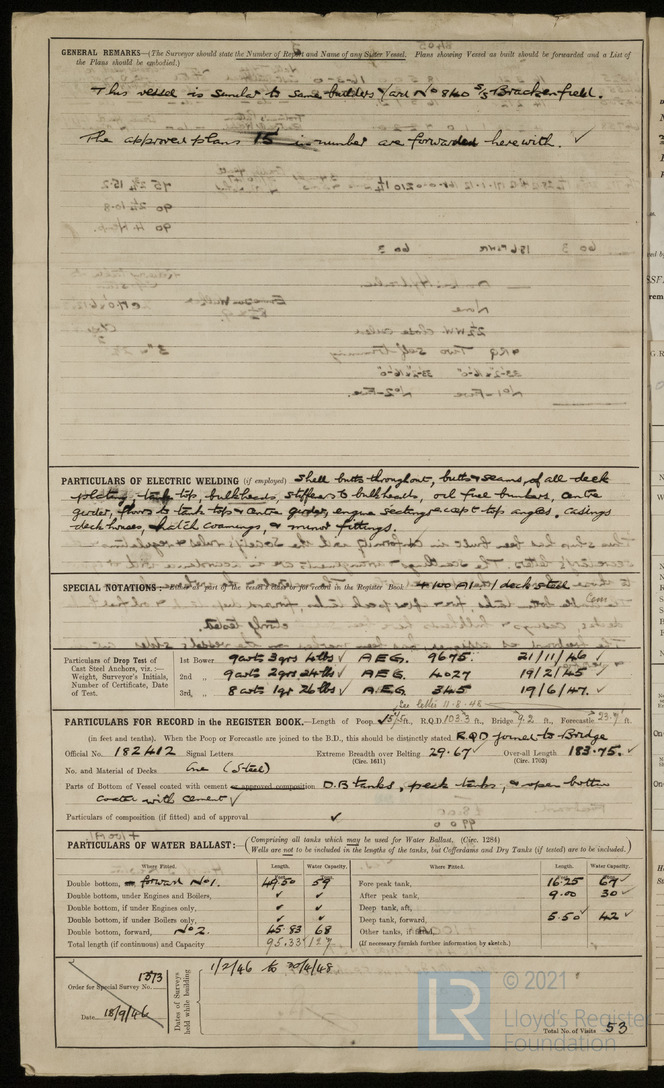 GENERAL REMARKS—(The Surveyor should state the Number of Report and Name of any Sister Vessel. Plans showing Vessel as built should be forwarded and a List of
the Plans should be embodied.)
This vessel is similar to same builders Yard No 840 S/S Brackenfield.
The approved plans 15 in number are forwarded herewith. ✓
PARTICULARS OF ELECTRIC WELDING (if employed) Shell butts throughout, butts & seams, of all deck
plating, tank top, bulkheads, stiffeners to bulkheads, oil fuel bunkers, centre
girder, floors to tank top & centre girder, engine seating except top angles, casings
deck houses, hatch coamings, & minor fittings.
SPECIAL NOTATIONS:— Either as part of the vessel's class or for record in the Register Book. +100A1. 1 deck steel
Cem
Particulars of Drop Test of
Cast Steel Anchors, viz.:—
Weight, Surveyor's Initials,
Number of Certificate, Date
of Test.
1st Bower 9 cwts 3 qrs 4 lbs ✓ A.E.G. 9675. 21/11/46 ✓
2nd „ 9 cwts 2 qrs 24 lbs ✓ A.E.G. 4027 19/2/45 ✓
3rd „ 8 cwts 1 qr 26 lbs ✓ A.E.G. 345 19/6/47. ✓
See letter 11-8-48
PARTICULARS FOR RECORD in the REGISTER BOOK.—Length of Poop ft., R.Q.D. 103.3 ft., Bridge 9.2 ft., Forecastle 23.7 ft.
(in feet and tenths). When the Poop or Forecastle are joined to the B.D., this should be distinctly stated R.Q.D joined to Bridge
Official No. 182412 Signal Letters Extreme Breadth over Belting 29.67 ✓ Over-all Length 183.75. ✓
(Circ. 1611) (Circ. 1703)
No. and Material of Decks One (Steel)
Parts of Bottom of Vessel coated with cement or approved composition D.B tanks, peak tanks, & open bottom
coated with cement ✓
Particulars of composition (if fitted) and of approval ✓
PARTICULARS OF WATER BALLAST:— (Comprising all tanks which may be used for Water Ballast. (Circ. 1284)
Wells are not to be included in the lengths of the tanks, but Cofferdams and Dry Tanks (if tested) are to be included.)
Where Fitted. Length. Water Capacity. Where Fitted. Length. Water Capacity.
Double bottom, forward No 1. 49.50 59 Fore peak tank, 16.25 67 ✓
Double bottom, under Engines and Boilers, ✓ ✓ After peak tank, 9.00 30 ✓
Double bottom, if under Engines only, ✓ ✓ Deep tank, aft,
Double bottom, if under Boilers only, ✓ ✓ Deep tank, forward, 5.50 42 ✓
Double bottom, forward, No 2. 45.83 68 Other tanks, if fitted,
Total length (if continuous) and Capacity 95.33 127 (If necessary furnish further information by sketch.)
Order for Special Survey No. 1313
Date 18/9/46
Dates of Surveys held while building
1/2/46 to 30/4/48
Total No. of Visits 53
LR
© 2021
Lloyd's Register
Foundation